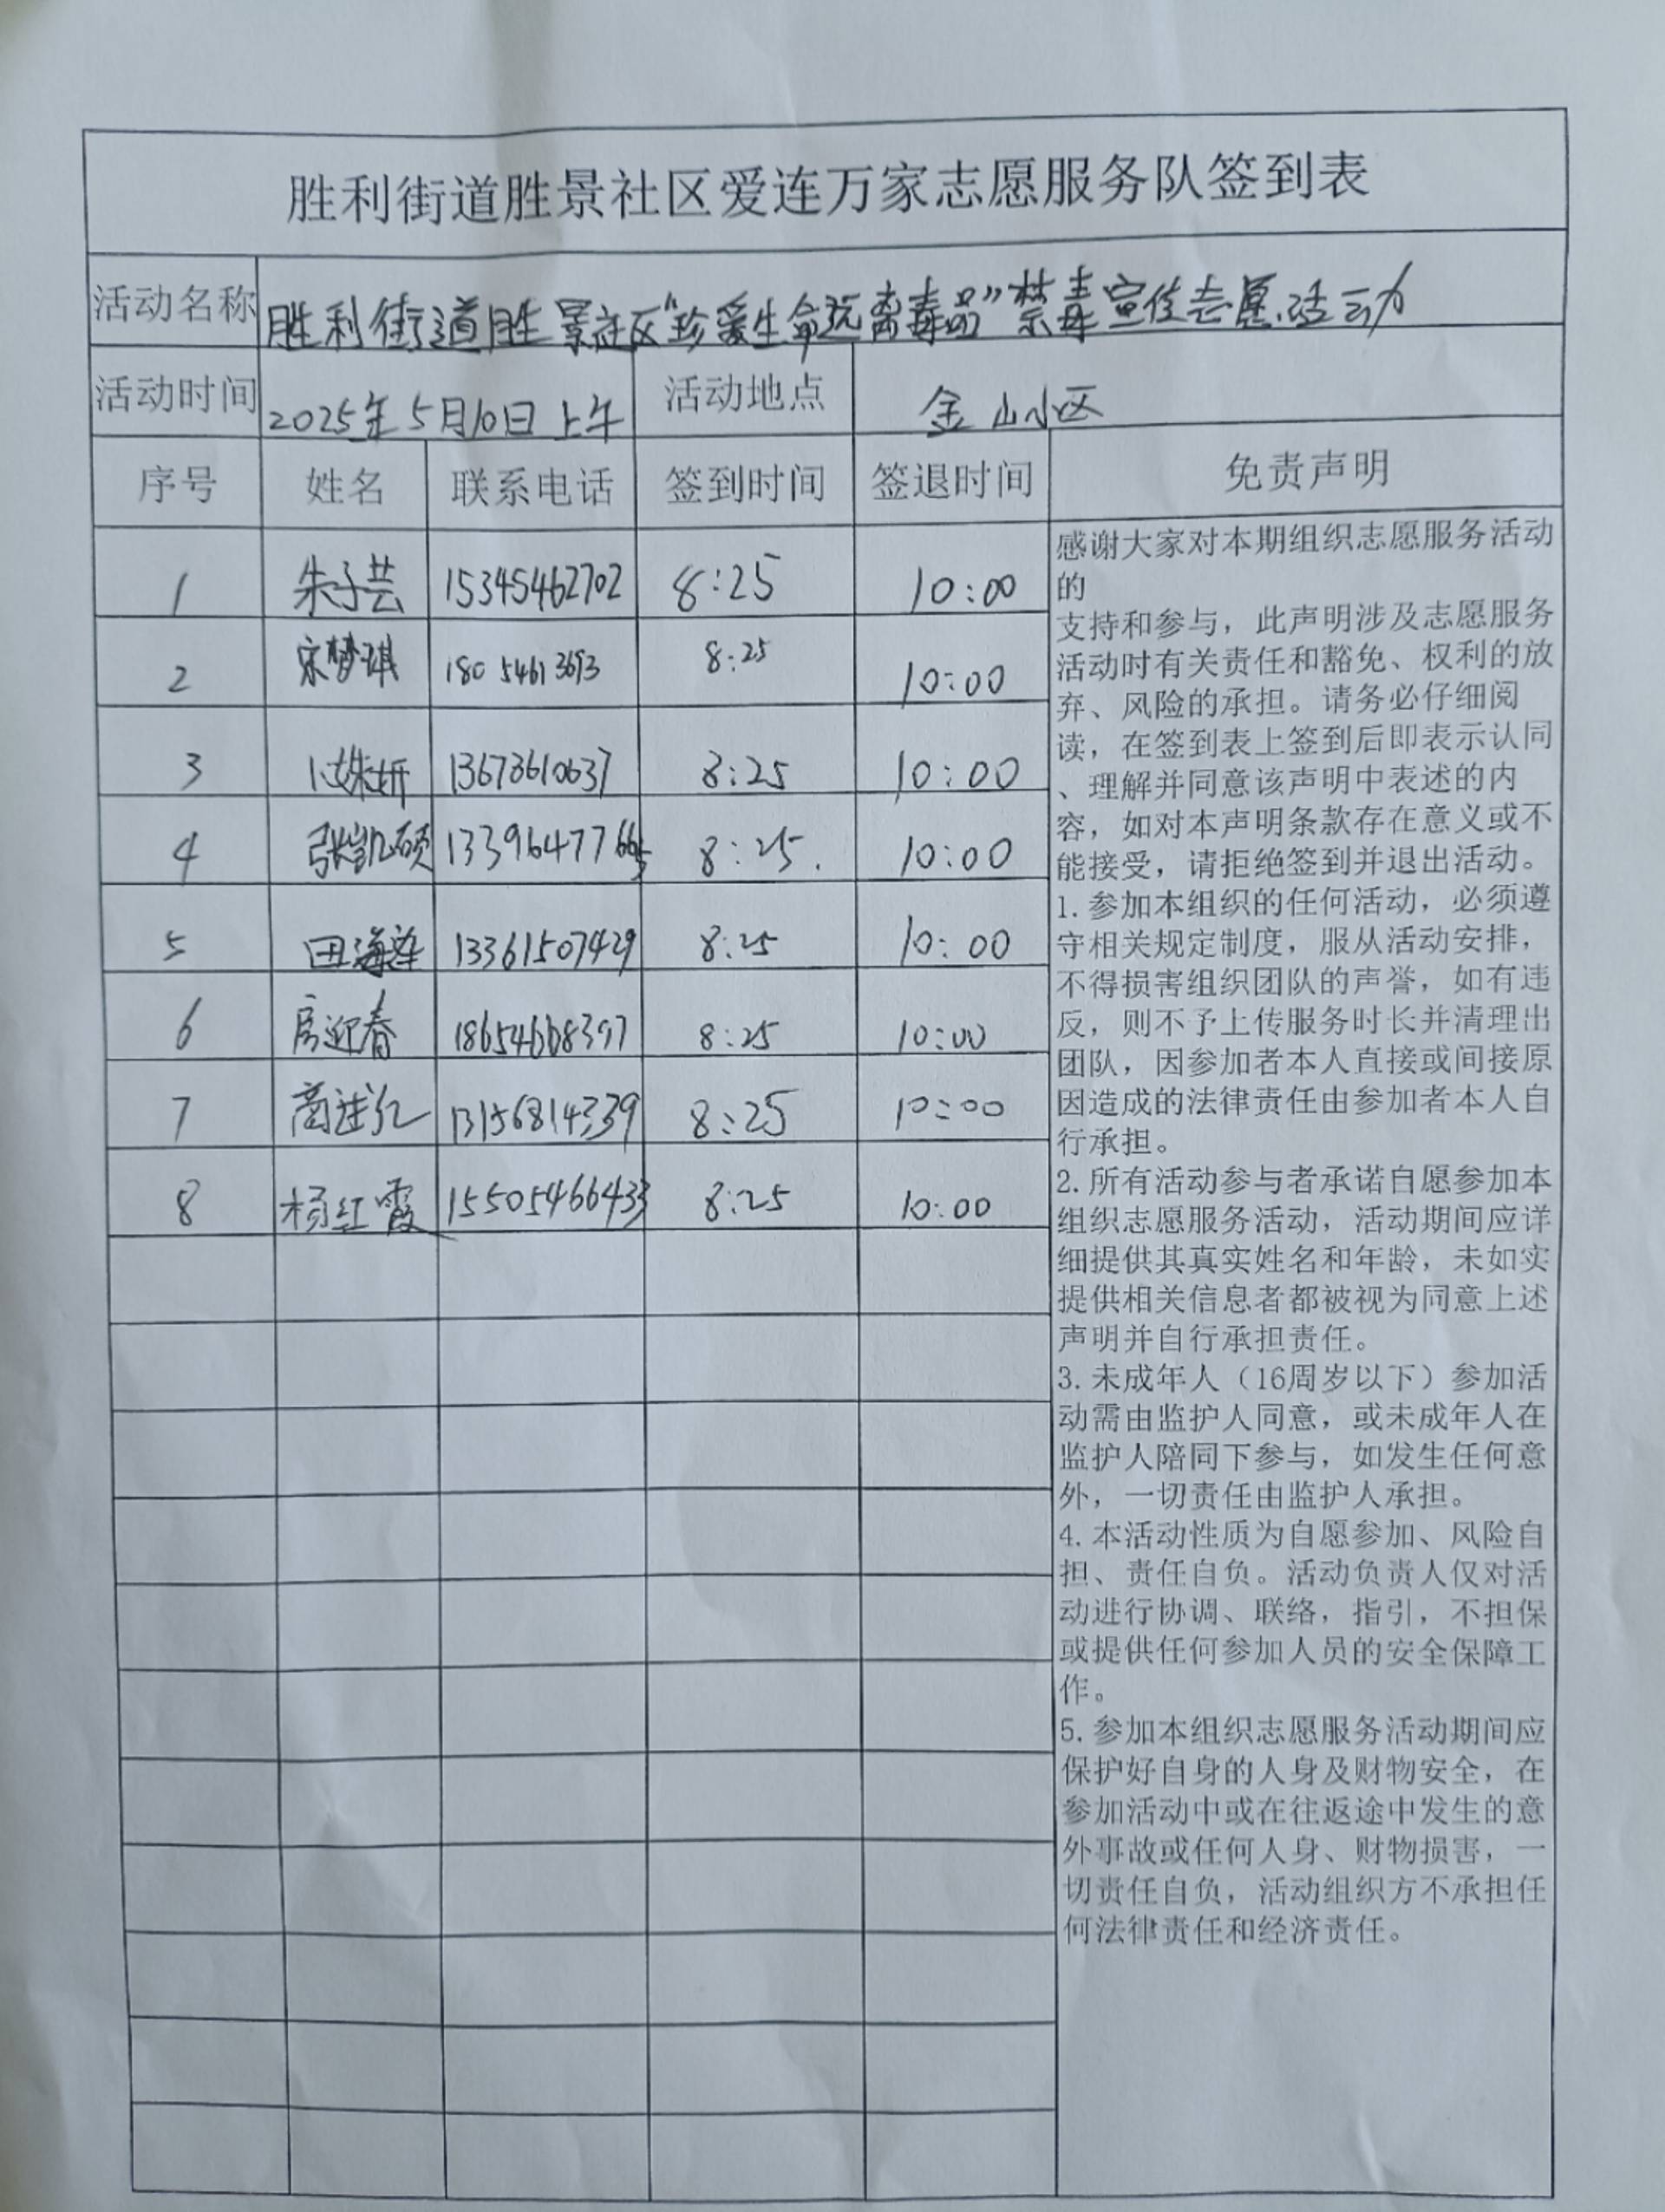 胜利街道胜景社区爱连万家志愿服务队签到表
活动名称 胜利街道胜景社区“珍爱生命远离毒品”禁毒宣传志愿活动
活动时间 2025年5月10日上午 活动地点 金山小区
序号 姓名 联系电话 签到时间 签退时间 免责声明
1 朱子芸 15345462702 8:25 10:00
2 宋梦琪 180 5461 3693 8:25 10:00
3 13678610637 8:25 10:00
4 张凯硕 13396477665 8:25. 10:00
5 田海莲 13361507429 8:25 10:00
6 房迎春 18654668397 8:25 10:00
7 13156814339 8:25 10:00
8 杨红霞 15505466433 8:25 10:00
感谢大家对本期组织志愿服务活动
的
支持和参与，此声明涉及志愿服务
活动时有关责任和豁免、权利的放
弃、风险的承担。请务必仔细阅
读，在签到表上签到后即表示认同
、理解并同意该声明中表述的内
容，如对本声明条款存在意义或不
能接受，请拒绝签到并退出活动。
1.参加本组织的任何活动，必须遵
守相关规定制度，服从活动安排，
不得损害组织团队的声誉，如有违
反，则不予上传服务时长并清理出
团队，因参加者本人直接或间接原
因造成的法律责任由参加者本人自
行承担。
2.所有活动参与者承诺自愿参加本
组织志愿服务活动，活动期间应详
细提供其真实姓名和年龄，未如实
提供相关信息者都被视为同意上述
声明并自行承担责任。
3.未成年人（16周岁以下）参加活
动需由监护人同意，或未成年人在
监护人陪同下参与，如发生任何意
外，一切责任由监护人承担。
4.本活动性质为自愿参加、风险自
担、责任自负。活动负责人仅对活
动进行协调、联络，指引，不担保
或提供任何参加人员的安全保障工
作。
5.参加本组织志愿服务活动期间应
保护好自身的人身及财物安全，在
参加活动中或在往返途中发生的意
外事故或任何人身、财物损害，一
切责任自负，活动组织方不承担任
何法律责任和经济责任。